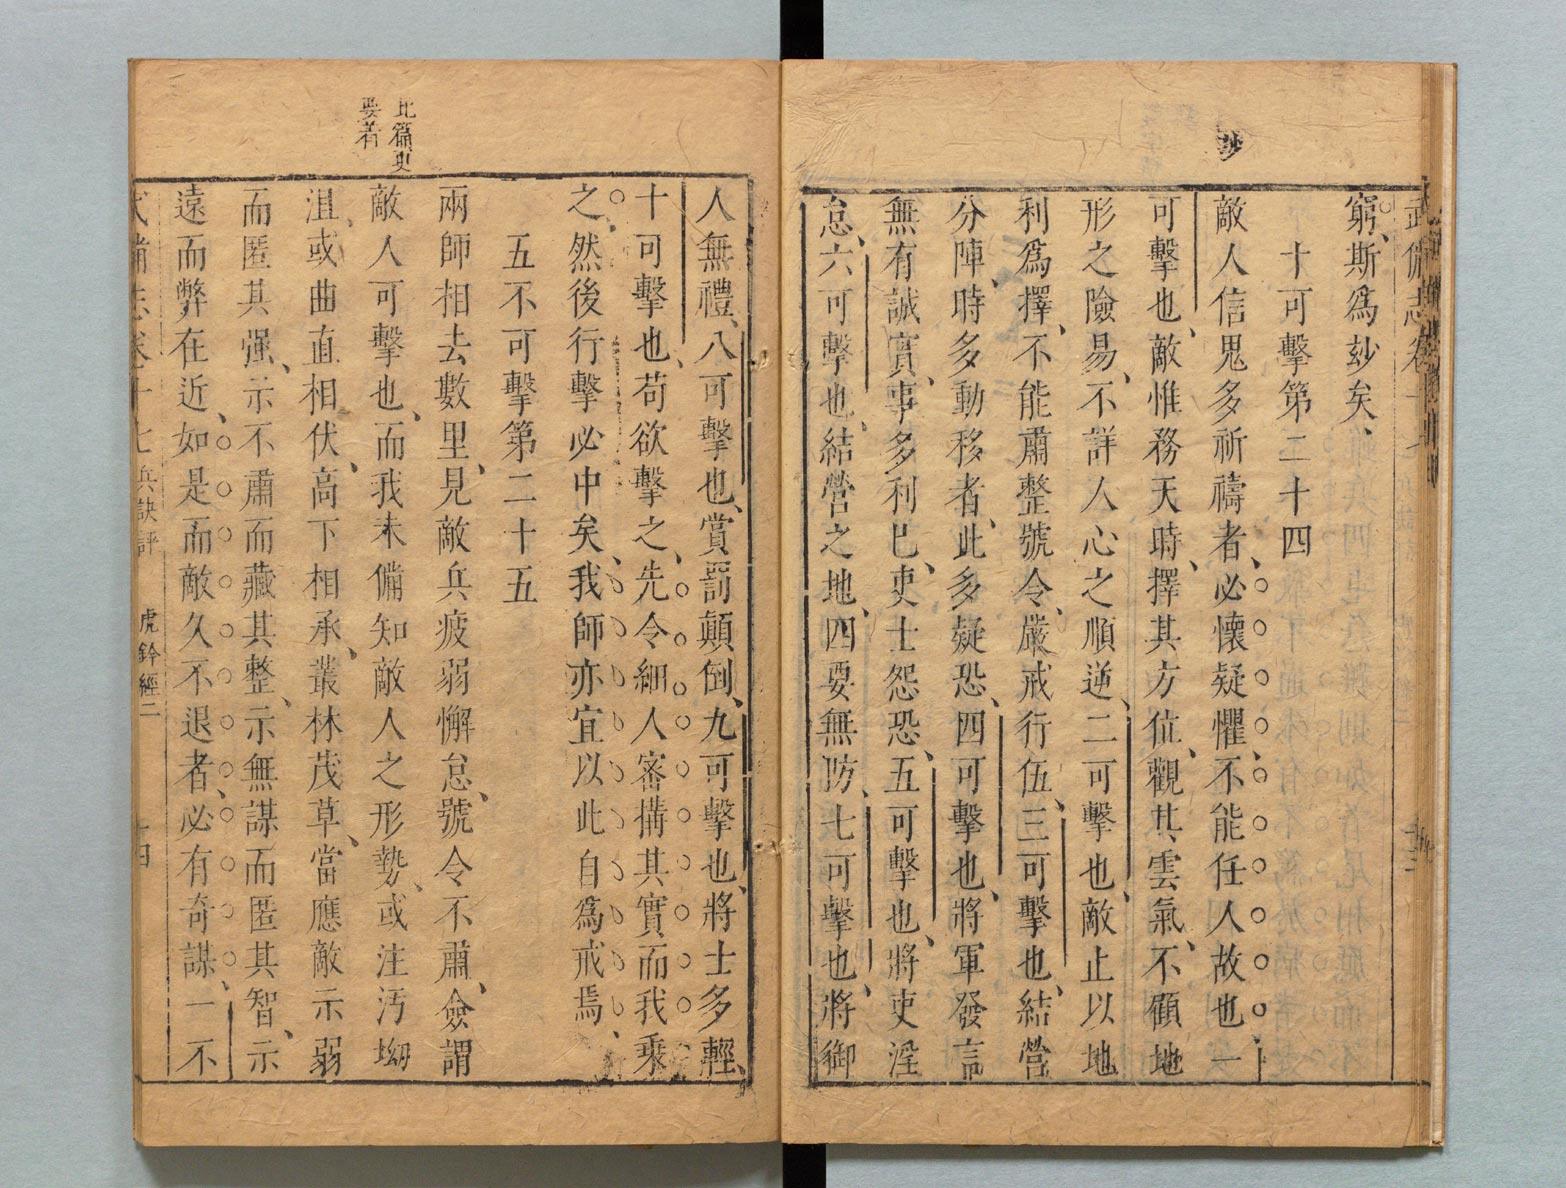 武備志卷十七
妙
窮、斯爲玅矣、
十可擊第二十四
敵人信鬼多祈禱者、必懷疑懼、不能任人故也、一
可擊也、敵惟務天時、擇其方位、觀其雲氣、不顧地
形之險易、不詳人心之順逆、二可擊也、敵止以地
利爲擇、不能肅整號令、嚴戒行伍、三可擊也、結營
分陣、時多動移者、此多疑恐、四可擊也、將軍發言
無有誠實、事多利巳、吏士怨恐、五可擊也、將吏淫
怠、六可擊也、結營之地、四要無防、七可擊也、將御
人無禮、八可擊也、賞罰顛倒、九可擊也、將士多輕、
十可擊也、苟欲擊之、先令細人審搆其實而我乘
之、然後行擊必中矣、我師亦宜以此自爲戒焉、
五不可擊第二十五
此篇更
要着
兩師相去數里、見敵兵疲弱懈怠、號令不肅、僉謂
敵人可擊也、而我未備知敵人之形勢、或注汚坳
沮、或曲直相伏、高下相承、叢林茂草、當應敵示弱
而匿其强、示不肅而藏其整、示無謀而匿其智、示
遠而弊在近、如是而敵久不退者、必有奇謀、一不
武備志卷十七 兵訣評 虎鈐經二 十四